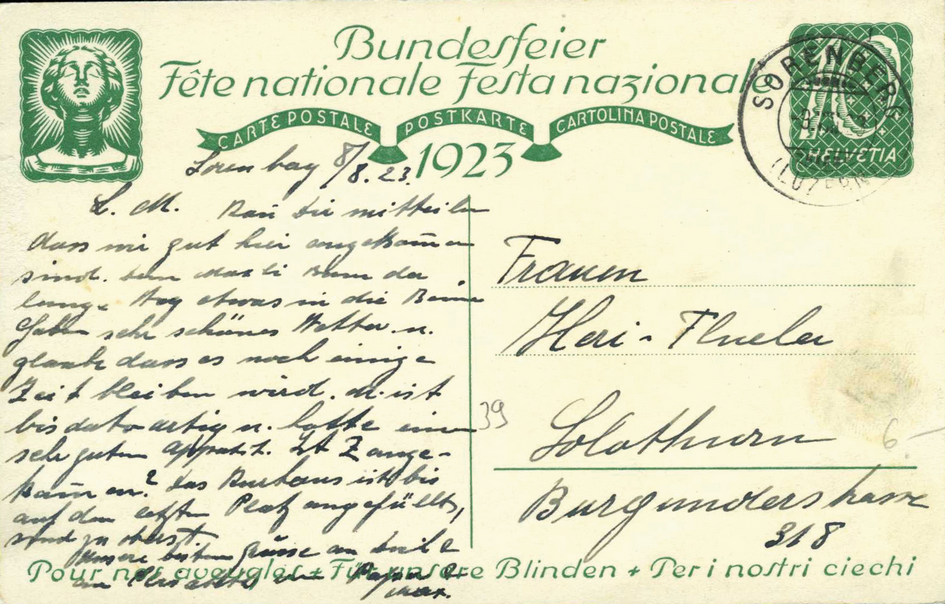 Bundesfeier
Fête nationale Festa nazionale
CARTE POSTALE POSTKARTE CARTOLINA POSTALE
1923
SÖRENBERG
(LUZERN)
HELVETIA
8/8.23.
L. M. Kan Dir mitteilen
dass wir gut hier angekom̄en
sind. dem
lange Weg etwas in die Beine
haben sehr schönes Wetter u.
glaube dass es noch einige
Zeit bleiben wird. M. ist
bis dato artig u. hatte einen
sehr guten Appetit. Ist Z ange-
kom̄en? Das Kurhaus ist bis
auf den letzten Platz angefüllt,
sind zu oberst
Unsere besten Grüsse an
Papa &
Max.
Frauen
Heri-Flueler
Solothurn
Burgunderstrasse
318
39
6.-
Pour nos aveugles + Für unsere Blinden + Per i nostri ciechi